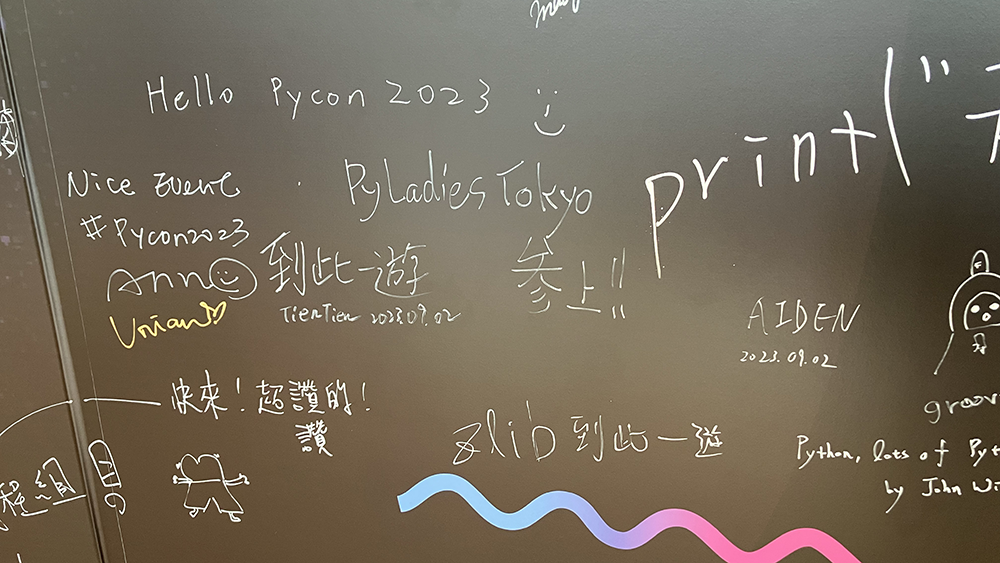 Hello Pycon 2023
print("
Nice Event
PyLadies Tokyo
#Pycon2023
Ann
到此一遊
参上!!
TienTien 2023.09.02
Vivian
AIDEN
2023.09.02
快來！超讚的！
讚
groov
zlib 到此一遊
Python, lots of Pyt
by John Wi
程組